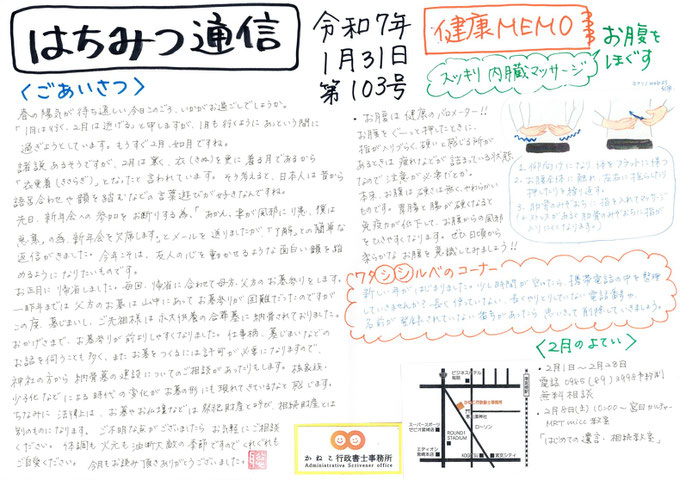 はちみつ通信
令和7年
1月31日
第103号
<ごあいさつ>
春の陽気が待ち遠しい今日このごろ、いかがお過ごしでしょうか。
「1月は行く、2月は逃げる」と申しますが、1月も行くようにあっという間に
過ぎようとしています。もうすぐ2月、如月ですね。
諸説あるそうですが、2月は寒く、衣(きぬ)を更に着る月であるから
「衣更着(きさらぎ)」となったと言われています。そう考えると、日本人は昔から
語呂合わせや韻を踏むなどの言葉遊びが好きなんですね。
先日、新年会への参加をお断りする為、「あかん、妻が風邪になり悪、僕は
の為、新年会を欠席します。」とメールを送りましたが「了解」との簡単な
返信がきました。今年こそは、友人の心を動かせるような面白い韻を踏
めるようになりたいものです。
お正月に帰省しました。毎回、帰省に合わせて母方・父方のお墓参りをします。
一昨年までは父方のお墓は山中にあってお墓参りが困難だったのですが
この度、墓じまいし、ご先祖様は永代供養の合葬墓に納骨されておりました。
おかげさまで、お墓参りが前よりしやすくなりました。仕事柄、墓じまいなどの
お話を伺うことも多く、またお墓をつくるには許可が必要になりますので、
神社の方から納骨墓の建設についてのご相談があったりもします。核家族、
少子化などによる時代の変化がお墓の形にも現れてきているなと感じます。
ちなみに法律上は、お墓やお仏壇などは祭祀財産と呼び、相続財産とは
別のものになります。ご不明な点がございましたらお気軽にご相談
ください。体調も火元も油断大敵の季節ですのでくれぐれも
ご自愛ください。今月もお読み頂きありがとうございました。
健康MEMO
お腹を
ほぐす
スッキリ内臓マッサージ
・お腹は健康のバロメーター!!
お腹をぐーっと押したときに、
指が入りづらく、硬いと感じる所が
あるときは疲れなどが詰まっている状態
なので注意が必要だとか。
本来、お腹は硬さは無くやわらかい
ものです。胃腸と腸が硬くなると
免疫力が低下して、お腹からの風邪
をひきやすくなります。ぜひ日頃から
柔らかなお腹を意識してみましょう!!
1. 仰向けになり体をフラットに保つ
2. お腹全体に触れ、左右に揺らしたり
押したりを繰り返す。
3. 肋骨のみぞおちに指を入れてマッサージ
ワタシシルベのコーナー
新しい年がはじまりました。少し時間が空いたら、携帯電話の中を整理
していきませんか?長く使っていない、長くやりとりしていない電話番号や、
名前が登録されていない番号があったら思いきって削除していきましょう。
<2月のよてい>
・2月1日〜2月28日
無料相談
・2月8日(土)10:00〜宮日カルチャー
MRT micc 教室
「はじめての遺言・相続教室」
かねこ行政書士事務所
Administrative Scrivener office
ビジネスホテル
かねこ行政書士事務所
ローソン
ROUND1
STADIUM
スーパースポーツ
ゼビオ宮崎本店
エディオン
宮崎本店
宮交シティ